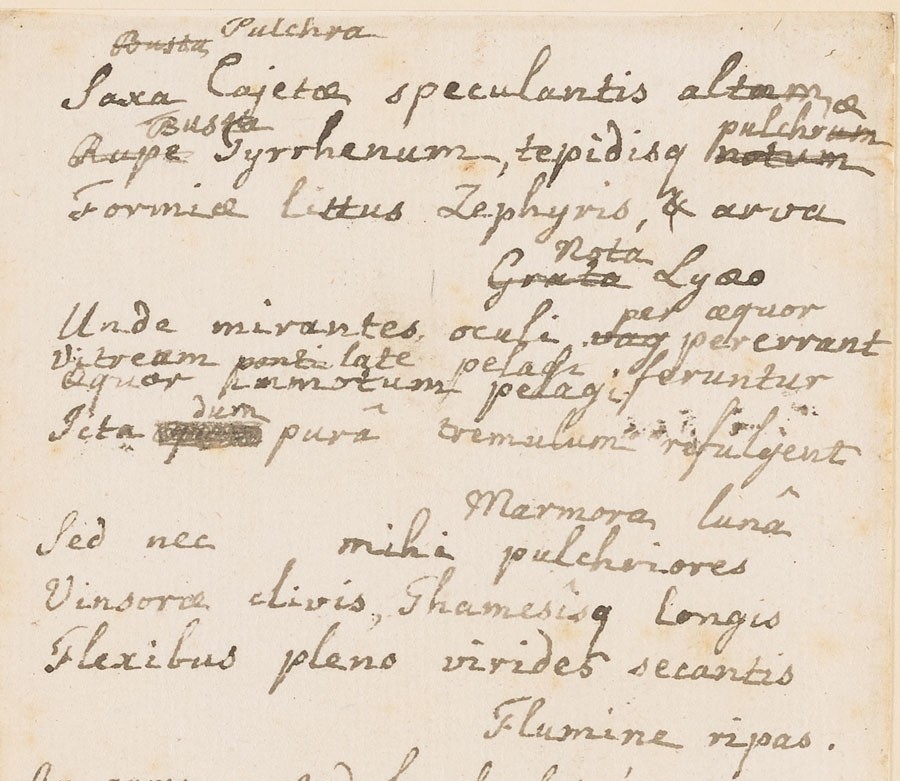 Busta Pulchra
Saxa Cajetæ speculantis altam, æ
Busta pulchrum
Rupe Tyrrhenum, tepidisq notum
Formiæ littus Zephyris, & arva
Nota
Grata Lyæo
per æquor
Unde mirantes oculi vag pererrant
Vitream ponti late pelagi
Æquor immotum pelagi feruntur
dum
Icta purâ tremulum refulgent
Marmora lunâ
Sed nec mihi pulchriores
Vinsoræ clivis, Thamesîsq longis
Flexibus pleno virides secantis
Flumine ripas.